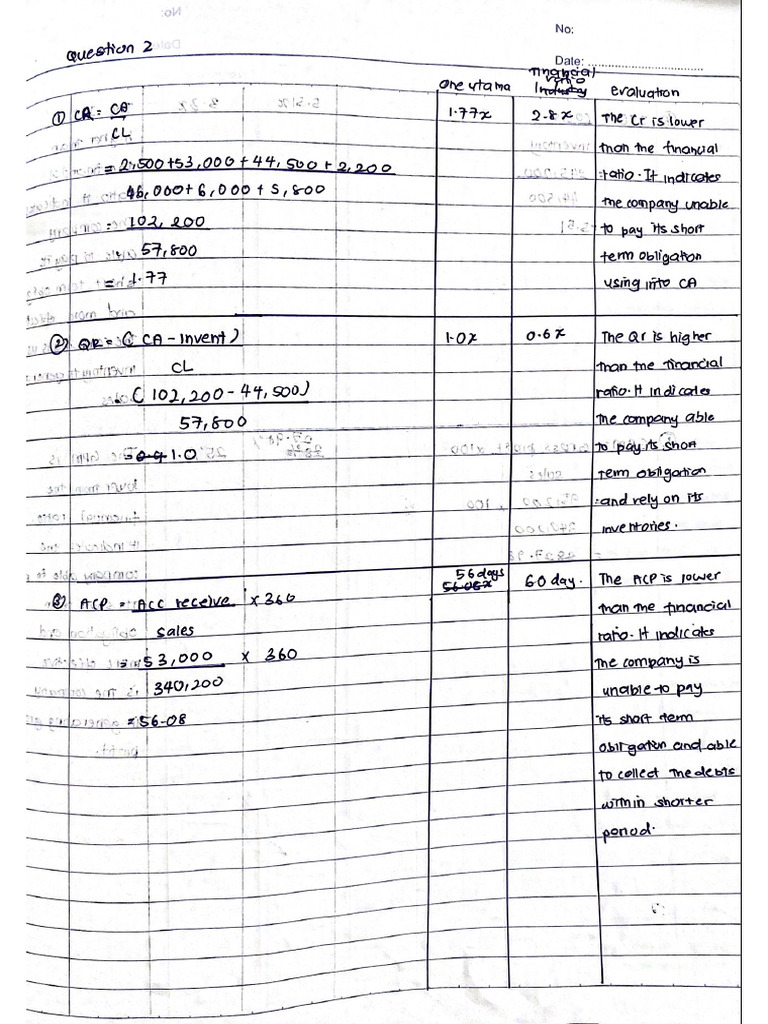 No:
Question 2
Date: ..............................
one utama
Financial
ratio
Industry
evaluation
① CR = CA
CL
= 2,500+53,000 + 44,500 + 2,200
46,000+6,000+5,800
= 102,200
57,800
= 1.77
1.77x
2.8x
The Cr is lower
than the financial
ratio. It indicates
the company unable
to pay its short
term obligation
using into CA
② QR = ( CA - Invent )
CL
= ( 102,200 - 44,500 )
57,800
= 1.0
1.0x
0.6x
The Qr is higher
than the financial
ratio. It indicates
the company able
to pay its short
term obligation
and rely on its
inventories.
③ ACP = Acc receive x 360
sales
= 53,000 x 360
340,200
= 56.08
56 days
56.08x
60 day.
The ACP is lower
than the financial
ratio. It indicates
the company is
unable to pay
its short term
obligation and able
to collect the debts
within shorter
period.